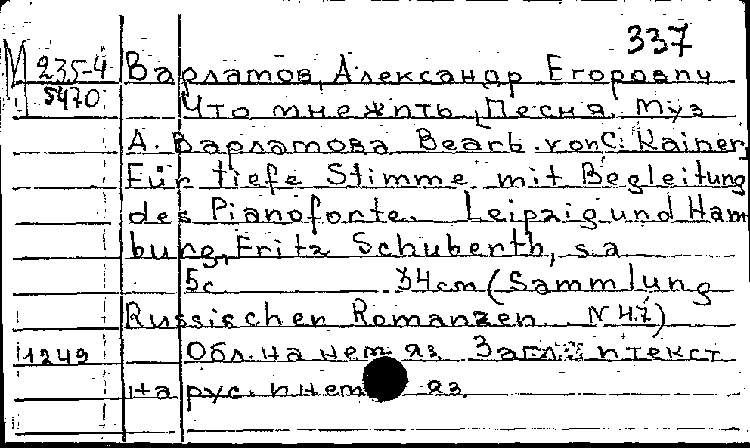 337
М 235-4 Варламов, Александр Егорович
5470 Что мне жить, Песня. Муз
А. Варламова Bearb. von C. Kainer,
Für tiefe Stimme mit Begleitung
des Pianoforte. Leipzig und Ham
burg, Fritz Schuberth, s.a
5с 34 cm (Sammlung
Russischer Romanzen N 47)
1249 Обл. на нем яз Загл и текст
на рус. и нем яз.